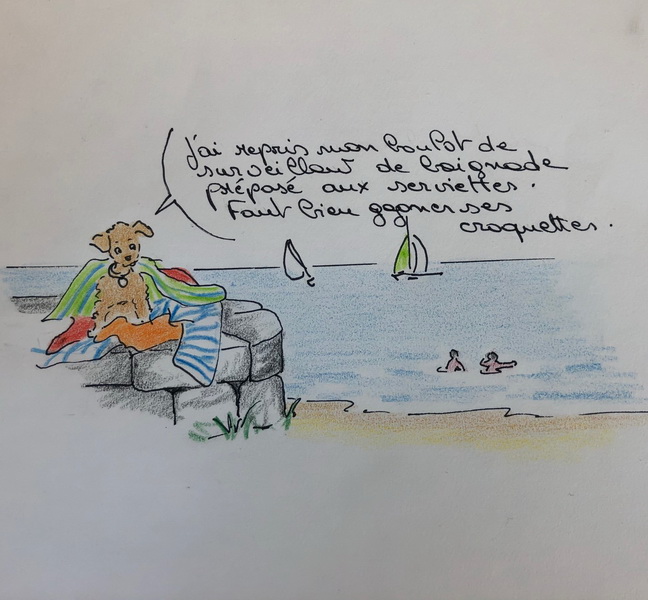 j'ai repris mon boulot de
surveillant de baignade
préposé aux serviettes.
Faut bien gagner ses
croquettes.